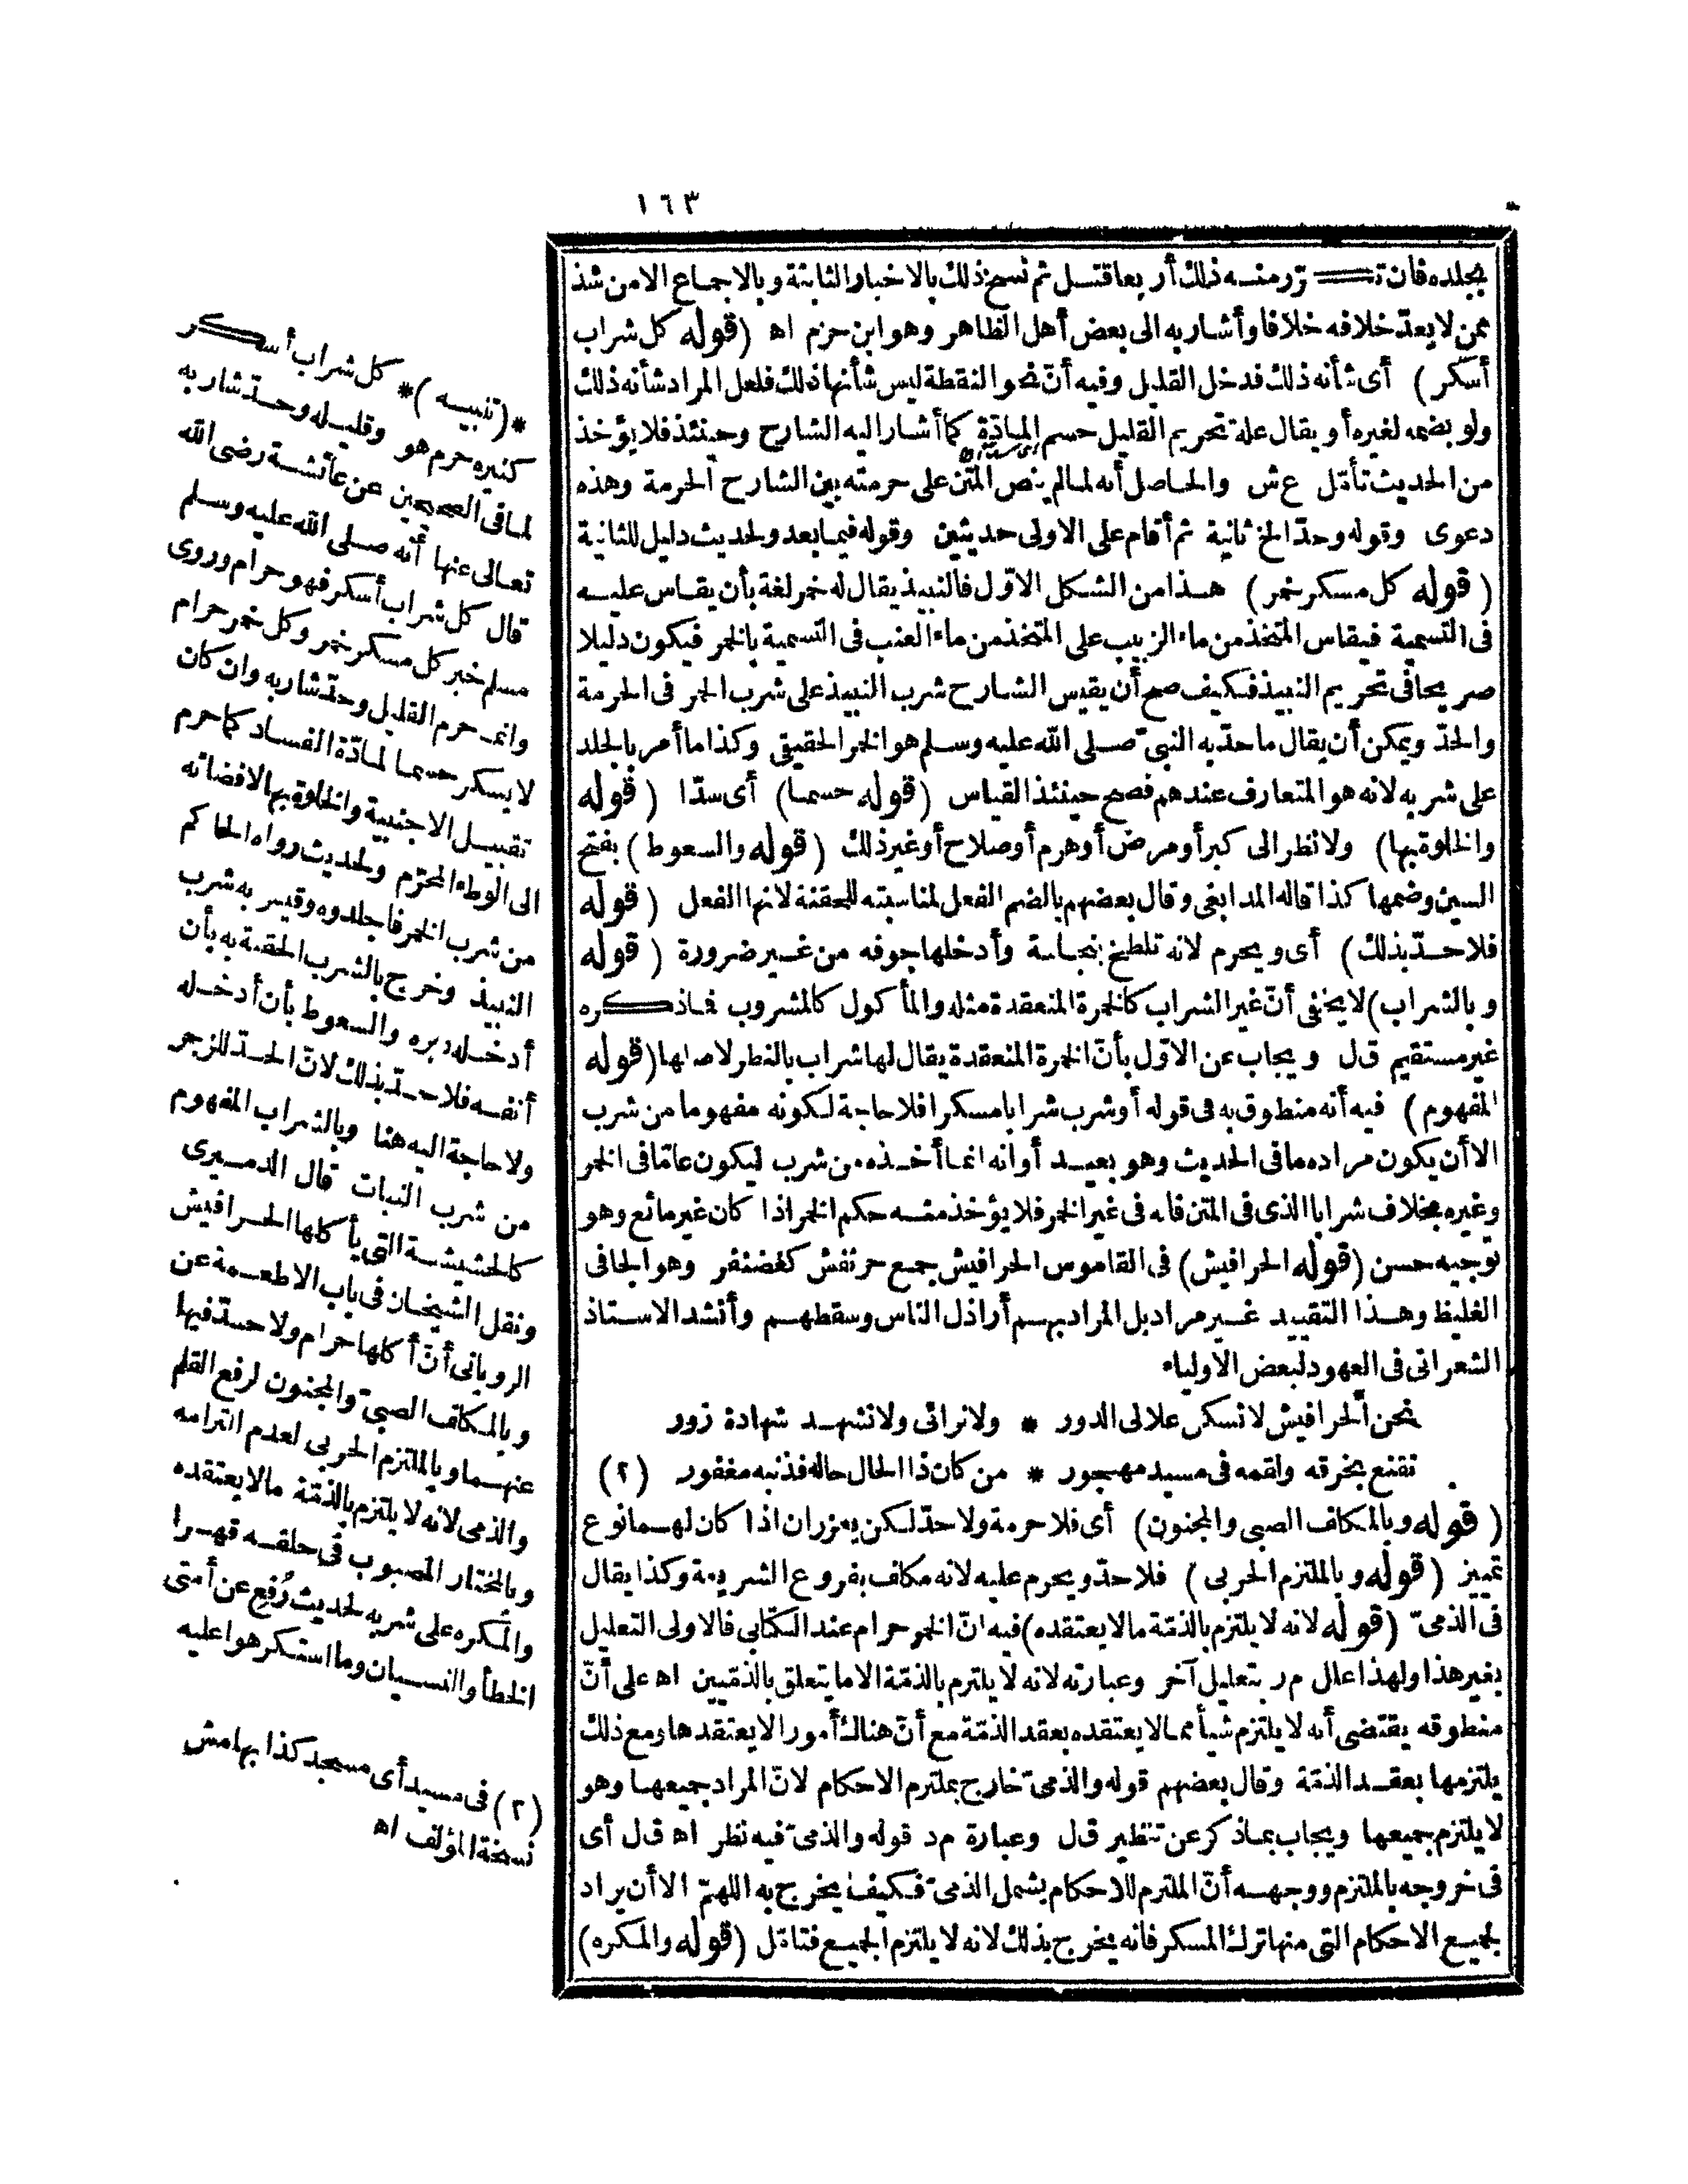 ١٦٣
بجلده فان تكرر منه ذلك أربعا قتل ثم نسخ ذلك بالاخبار الثابتة وبالاجماع الا من شذ
ممن لا يعدّ خلافه خلافا وأشار به الى بعض أهل الظاهر وهو ابن حزم اه (قوله كل شراب
أسكر) أى شأنه ذلك فدخل القليل وفيه أنّ نحو النقطة ليس شأنها ذلك فلعل المراد شأنه ذلك
ولو بضمه لغيره أو يقال علة تحريم القليل حسم المادّة كما أشار اليه الشارح وحينئذ فلا يؤخذ
من الحديث تأمّل ع ش والحاصل أنه لما لم ينص المتن على حرمته بين الشارح الحرمة وهذه
دعوى وقوله وحدّ الخ ثانية ثم أقام على الاولى حديثين وقوله فيما بعد ولحديث دليل للثانية
(قوله كل مسكر خمر) هذا من الشكل الاوّل فالنبيذ يقال له خمر لغة بأن يقاس عليه
فى التسمية فيقاس المتخذ من ماء الزبيب على المتخذ من ماء العنب فى التسمية بالخمر فيكون دليلا
صريحا فى تحريم النبيذ فكيف صح أن يقيس الشارح شرب النبيذ على شرب الخمر فى الحرمة
والحدّ ويمكن أن يقال ما حدّ به النبىّ صلى الله عليه وسلم هو الخمر الحقيقى وكذا ما أمر بالجلد
على شربه لانه هو المتعارف عندهم فصح حينئذ القياس (قوله حسما) أى سدّا (قوله
والخلوة بها) ولا نظر الى كبر أو مرض أو هرم أو صلاح أو غير ذلك (قوله والسعوط) بفتح
السين وضمها كذا قاله المدابغى وقال بعضهم بالضم الفعل لمناسبته للحقنة لانها الفعل (قوله
فلا حدّ بذلك) أى ويحرم لانه تلطخ بنجاسة وأدخلها جوفه من غير ضرورة (قوله
وبالشراب) لا يخفى أنّ غير الشراب كالخمرة المنعقدة مثله والمأكول كالمشروب فما ذكره
غير مستقيم ق ل ويجاب عن الاوّل بأنّ الخمرة المنعقدة يقال لها شراب بالنظر لاصلها (قوله
المفهوم) فيه أنه منطوق به فى قوله أو شرب شرابا مسكرا فلا حاجة لكونه مفهوما من شرب
الا أن يكون مراده ما فى الحديث وهو بعيد أو انه انما أخذه من شرب ليكون عامّا فى الخمر
وغيره بخلاف شرابا الذى فى المتن فانه فى غير الخمر فلا يؤخذ منه حكم الخمر اذا كان غير مائع وهو
توجيه حسن (قوله الحرافيش) فى القاموس الحرافيش جمع حرنفش كغضنفر وهو الجافى
الغليظ وهذا التقييد غير مراد بل المراد بهم أراذل الناس وسقطهم وأنشد الاستاذ
الشعرانى فى العهود لبعض الاولياء
نحن الحرافيش لا نسكن علالى الدور * ولا نرائى ولا نشهد شهادة زور
نقنع بخرقه ولقمه فى مسيد مهجور * من كان ذا الحال حاله فذنبه مغفور (٢)
(قوله وبالمكلف الصبى والمجنون) أى فلا حرمة ولا حدّ لكن يعزران اذا كان لهما نوع
تمييز (قوله وبالملتزم الحربى) فلا حدّ ويحرم عليه لانه مكلف بفروع الشريعة وكذا يقال
فى الذمىّ (قوله لانه لا يلتزم بالذمّة ما لا يعتقده) فيه انّ الخمر حرام عند الكتابى فالاولى التعليل
بغير هذا ولهذا علل م ر بتعليل آخر وعبارته لانه لا يلتزم بالذمّة الا ما يتعلق بالذمّيين اه على أنّ
منطوقه يقتضى أنه لا يلتزم شيأ مما لا يعتقده بعقد الذمّة مع أنّ هناك أمورا لا يعتقدها ومع ذلك
يلتزمها بعقد الذمّة وقال بعضهم قوله والذمىّ خارج بملتزم الاحكام لانّ المراد جميعها وهو
لا يلتزم جميعها ويجاب بما ذكر عن تنظير ق ل وعبارة م د قوله والذمىّ فيه نظر اه ق ل أى
فى خروجه بالملتزم ووجهه أنّ الملتزم للاحكام يشمل الذمىّ فكيف يخرج به اللهمّ الا أن يراد
لجميع الاحكام التى منها ترك المسكر فانه يخرج بذلك لانه لا يلتزم الجميع فتأمّل (قوله والمكره)
*(تنبيه)* كل شراب أسكر
كثيره حرم هو وقليله وحدّ شاربه
لما فى الصحيحين عن عائشة رضى الله
تعالى عنها أنه صلى الله عليه وسلم
قال كل شراب أسكر فهو حرام وروى
مسلم خبر كل مسكر خمر وكل خمر حرام
وانما حرم القليل وحدّ شاربه وان كان
لا يسكر حسما لمادّة الفساد كما حرم
تقبيل الاجنبية والخلوة بها لافضائه
الى الوطء المحرّم ولحديث رواه الحاكم
من شرب الخمر فاجلدوه وقيس به شرب
النبيذ وخرج بالشرب الحقنة به بأن
أدخله دبره والسعوط بأن أدخله
أنفه فلا حدّ بذلك لانّ الحدّ للزجر
ولا حاجة اليه هنا وبالشراب المفهوم
من شرب النبات قال الدميرى
كالحشيشة التى يأكلها الحرافيش
ونقل الشيخان فى باب الاطعمة عن
الرويانى أنّ أكلها حرام ولا حدّ فيها
وبالمكلف الصبىّ والمجنون لرفع القلم
عنهما وبالملتزم الحربى لعدم التزامه
والذمى لانه لا يلتزم بالذمّة ما لا يعتقده
وبالمختار المصبوب فى حلقه قهرا
والمكره على شربه لحديث رُفع عن أمتى
الخطأ والنسيان وما استكرهوا عليه
(٢) فى مسيد أى مسجد كذا بهامش
نسخة المؤلف اه